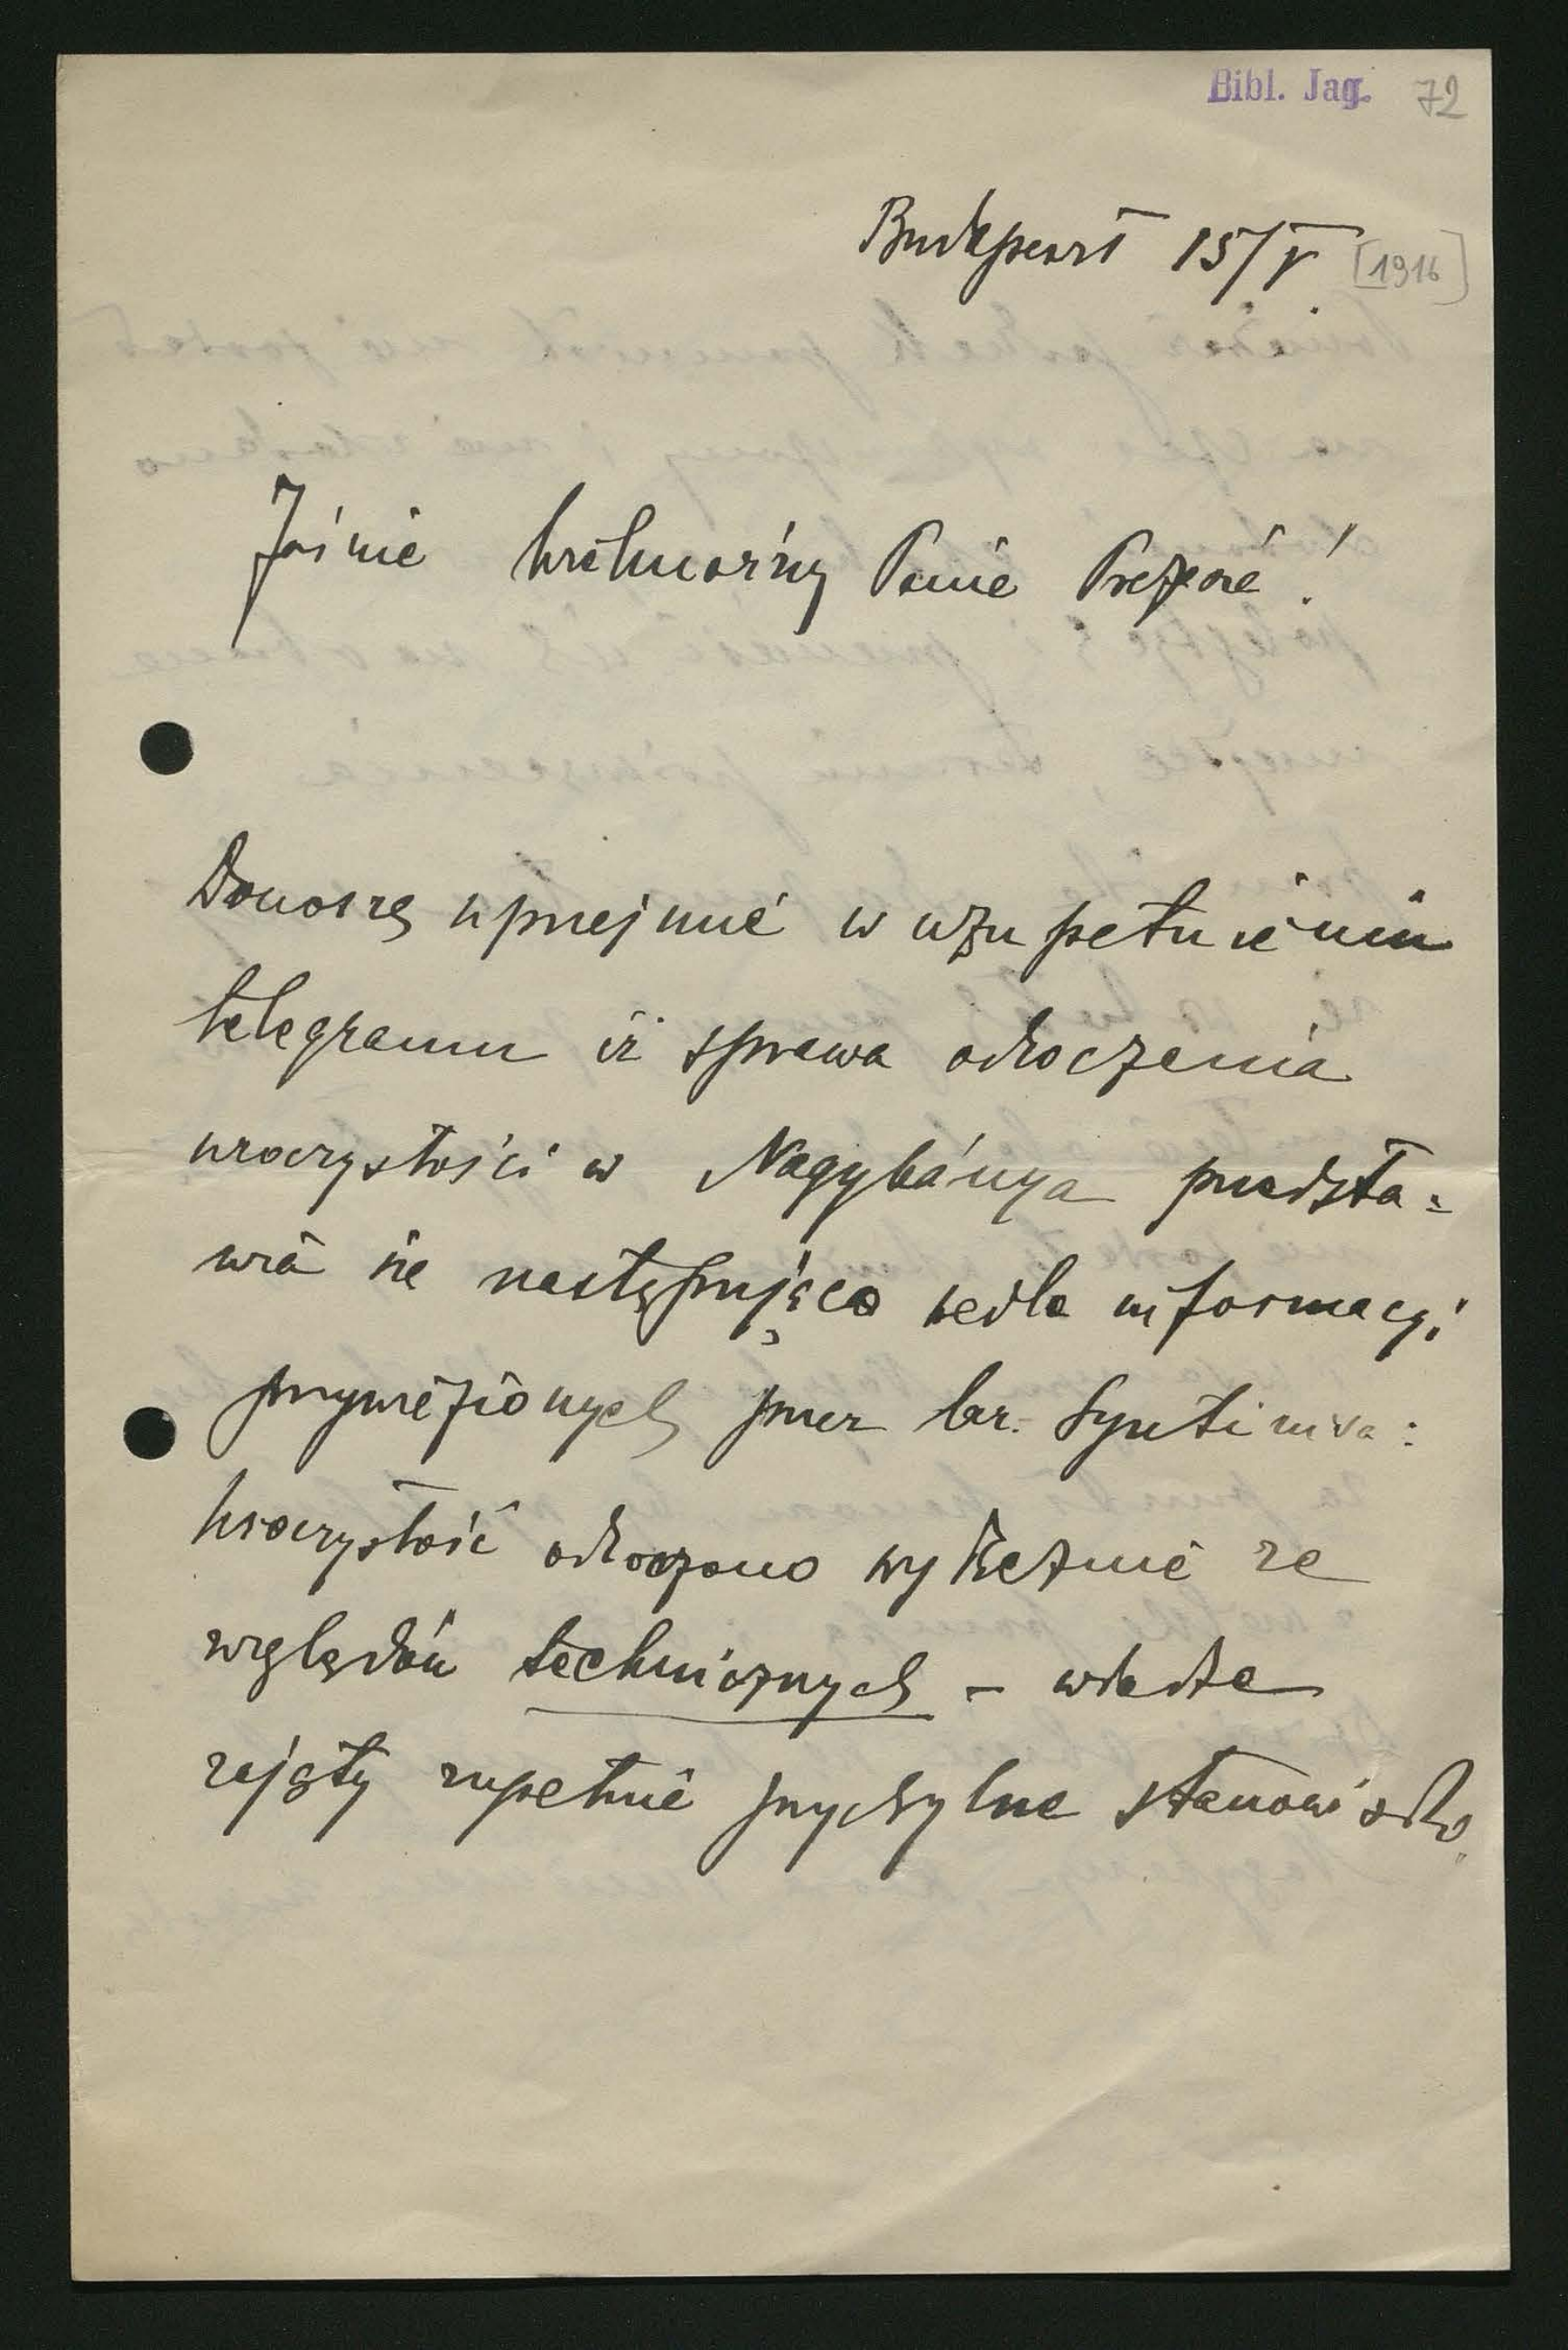 Bibl. Jag. 72
Budapeszt 15/V [1916]
Jaśnie Wielmożny Panie Prezesie!
Donoszę uprzejmie w uzupełnieniu
telegramu iż sprawa odroczenia
uroczystości w Nagybánya przedsta=
wia się następująco wedle informacyi
przywiezionych przez br.
Uroczystość odroczono wyłącznie ze
względów technicznych – władze
zajęły zupełnie przychylne stanowisko.